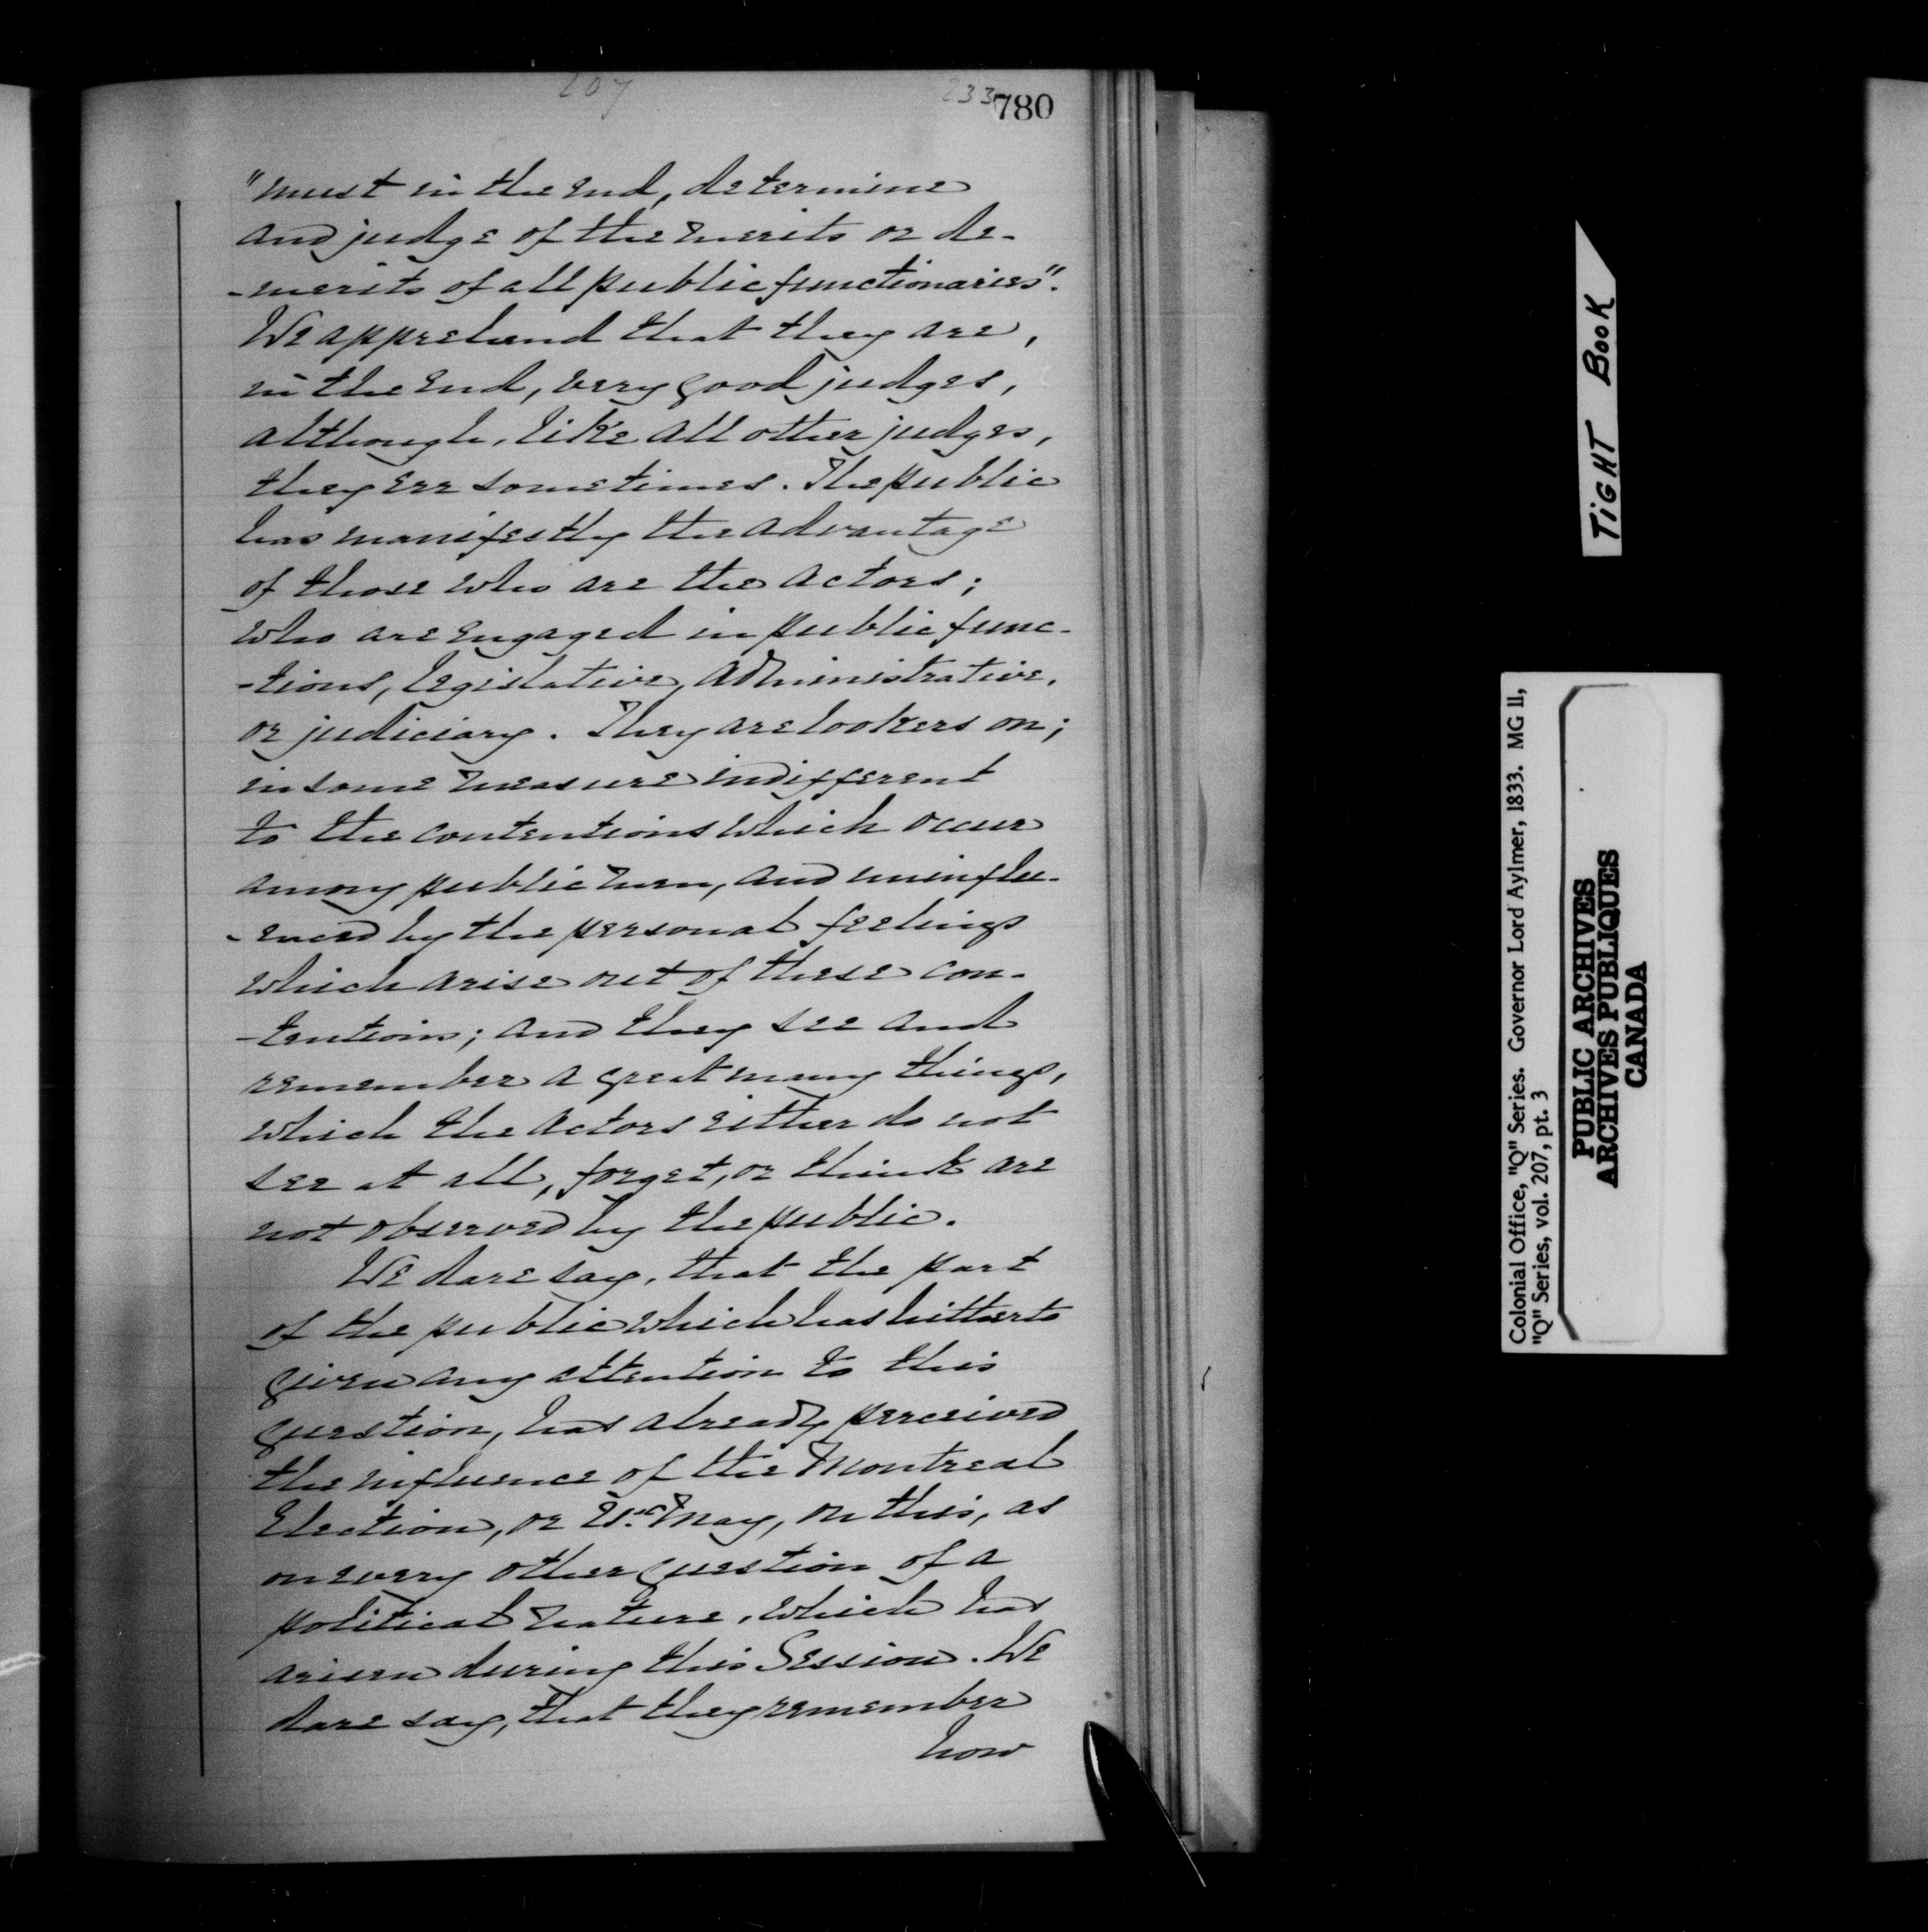 207
233 780
"must in the end, determine
and judge of the merits or de-
-merits of all public functionaries".
We apprehend that they are,
in the end, very good judges,
although, like all other judges,
they err sometimes. The public
has manifestly the advantage
of those who are the actors;
who are engaged in public func-
-tions, legislative, administrative,
or judiciary. They are lookers on;
in some measure indifferent
to the contentions which occur
among public men, and uninflu-
-enced by the personal feelings
which arise out of these con-
-tentions; and they see and
remember a great many things,
which the actors either do not
see at all, forget, or think are
not observed by the public.
We dare say, that the part
of the public which has hitherto
given any attention to this
question, has already perceived
the influence of the Montreal
Election, or 21st May, on this, as
on every other question of a
political nature, which has
arisen during this Session. We
dare say, that they remember
how
TIGHT BOOK
Colonial Office, "Q" Series. Governor Lord Aylmer, 1833. MG 11,
"Q" Series, vol. 207, pt. 3
PUBLIC ARCHIVES
ARCHIVES PUBLIQUES
CANADA